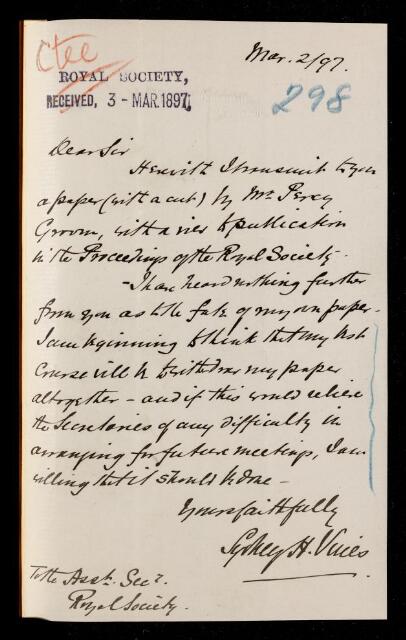 Ctee
Mar. 2/97.
ROYAL SOCIETY,
RECEIVED, 3 - MAR.1897,
298
Dear Sir
Herewith I transmit to you
a paper (with a cut) by Mr. Percy
Groom, with a view to publication
in the Proceedings of the Royal Society.
- I have heard nothing further
from you as to the fate of my own paper.
I am beginning to think that my best
course will be to withdraw my paper
altogether - and if this would relieve
the Secretaries of any difficulty in
arranging for future meetings, I am
willing that it should be done -
Yours faithfully
Sydney H. Vines
To the Asst. Secr.
Royal Society.